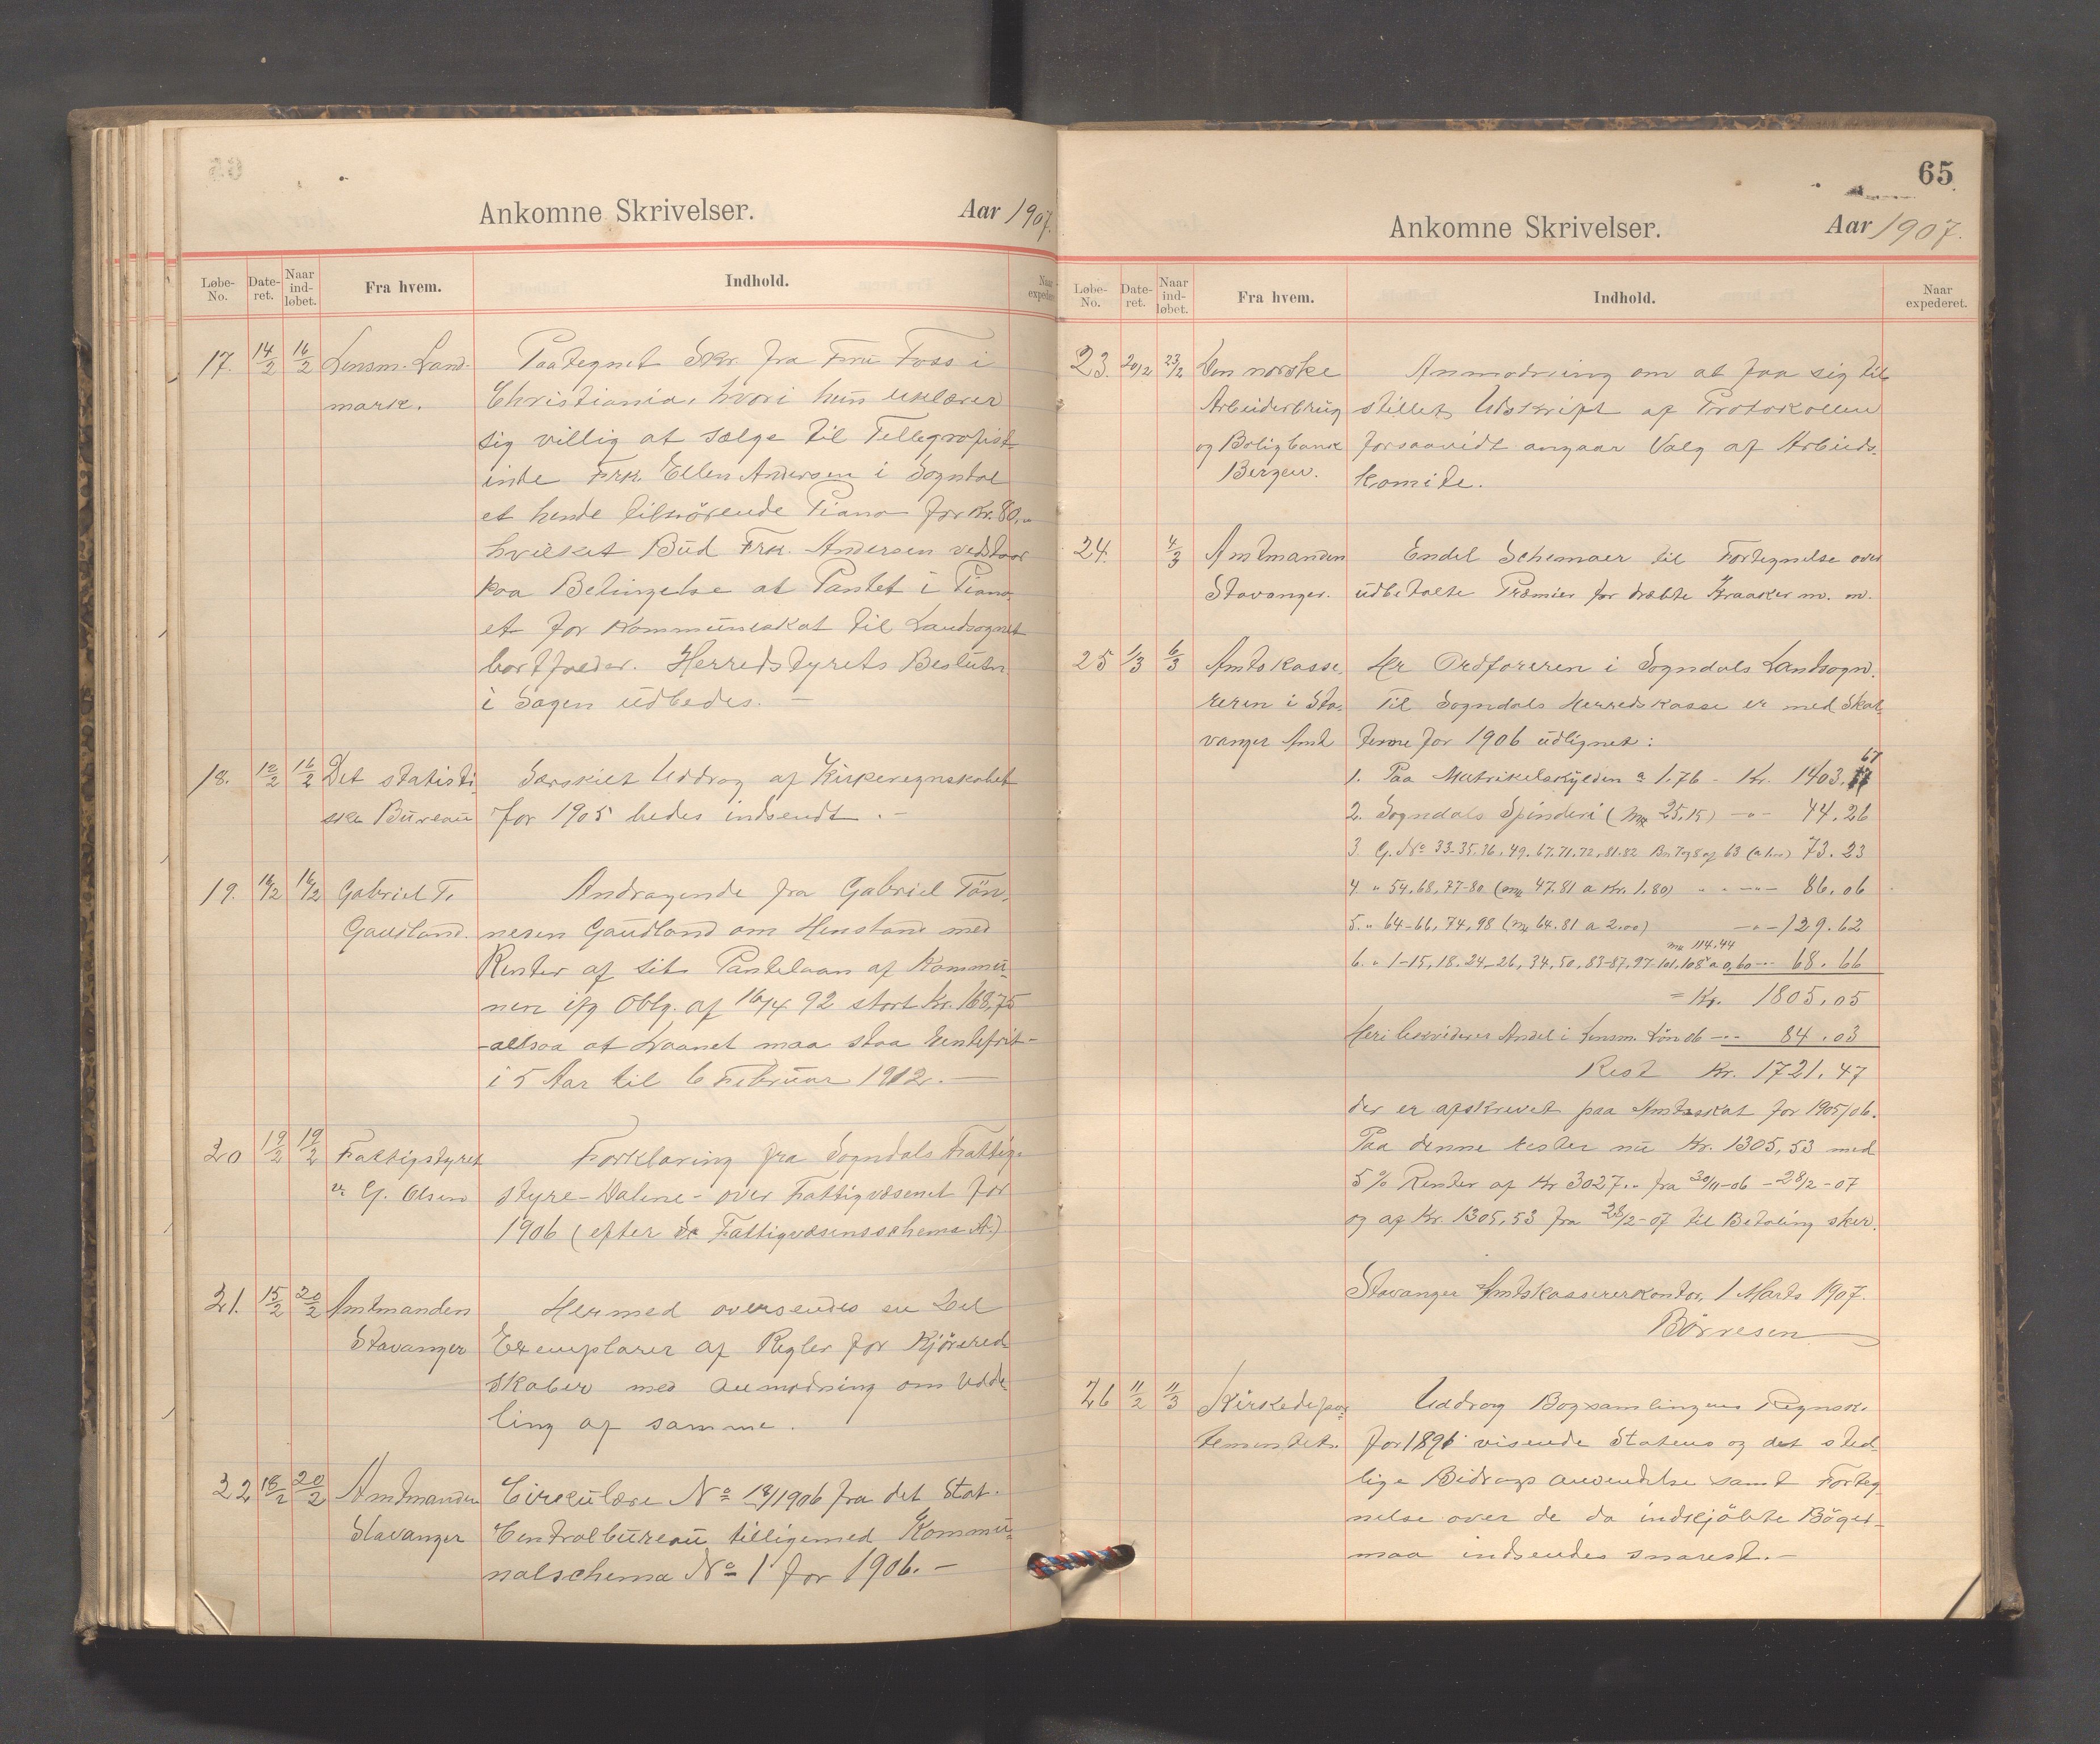 Ankomne Skrivelser. Aar 1907.
Løbe-No. Date-ret. Naar ind-løbet. Fra hvem. Indhold. Naar expederet.
17. 14/2 16/2 Lensm. Land- Paategnet Skr. fra Fru Foss i
mark. Christiania, hvori hun erklærer
sig villig at sælge til Tellegrafist-
inde Frk. Ellen Andersen i Sogndal
et hende tilhörende Piano for Kr. 80,-
hvilket Bud Frk. Andersen vedstaar
paa Betingelse at Pantet i Piano-
et for Kommuneskat til Landsognet
bortfalder. Herredstyrets Beslutn.
i Sagen udbedes. —
18. 12/2 16/2 Det statisti- Særskilt Uddrag af Kirkeregnskabet
ske Bureau for 1905 bedes indsendt. —
19. 16/2 16/2 Gabriel T. Andragende fra Gabriel Tön-
Gaudland. nesen Gaudland om Henstand med
Renter af sit Pantelaan af Kommu-
nen ifg Oblg. af 16/4 92 stort Kr. 168,75
-altsaa at Laanet maa staa rentefrit-
i 5 Aar til 6 Februar 1912. —
20 19/2 19/2 Fattigstyret Forklaring fra Sogndals Fattig-
v. G. Olsen styre - Dalene - over Fattigvæsenet for
1906 (efter Fattigvæsensschema A.)
21. 15/2 20/2 Amtmanden Hermed oversendes en Del
Stavanger Exemplarer af Regler for Kjöred
skaber med anmodning om Udde
ling af samme.
22 18/2 20/2 Amtmanden Circulære No 12/1906 fra det Stat.
Stavanger Centralbureau tilligemed Kommu-
nalschema No 1 for 1906. —
65
Ankomne Skrivelser. Aar 1907.
Løbe-No. Date-ret. Naar ind-løbet. Fra hvem. Indhold. Naar expederet.
23. 20/2 23/2 Den norske Anmodning om at faa sig til
Arbeiderbrug stillet Udskrift af Protokollen
og Boligbank forsaavidt angaar Valg af Arbeids-
Bergen. komite.
24. 4/3 Amtmanden Endel Schemaer til Fortegnelse over
Stavanger. udbetalte Præmier for dræbte Kraaker m. m.
25 1/3 6/3 Amtskasse- Hr Ordföreren i Sogndals Landsogn.
reren i Sta- Til Sogndals Herredskasse er med Skat-
vanger Amt terne for 1906 udlignet:
1. Paa Matrikelskylden a 1.76 - Kr. 1403.
2. Sogndals Spinderi (Mk 25,15) -"- 44.26
3 G. No 33-35.36, 49. 67.71.72, 81.82 73.23
4 " 54, 68, 77-80 (mk 47.81 a Kr. 1.80) " - 86.06
5. " 64-66, 74, 98 (mk 64.81 a 2.00) -"- 129.62
mk 114.44
6. " 1-15, 18. 24-26, 34, 50, 83-87, 97-101, 108 a 0,60 -"- 68.66
= Kr. 1805,05
Heri likvideres Andel i Lensm. Lön 06 -"- 84.03
Rest Kr. 1721.47
der er afskrevet paa Amtsskat for 1905/06.
Paa denne rester nu Kr. 1305,53 med
5 % Renter af Kr 3027.- fra 30/11-06 - 28/2-07
og af Kr. 1305,53 fra 28/2-07 til Betaling sker.
Stavanger Amtskassererkontor, 1 Marts 1907.
Börresen
26 11/2 11/3 Kirkedepar- Uddrag Bogsamlingens Regnsk.
tementet. for 1896 visende Statens og det sted
lige Bidrags anvendelse samt Forteg
nelse over de da indkjöbte Böger -
maa indsendes snarest. —